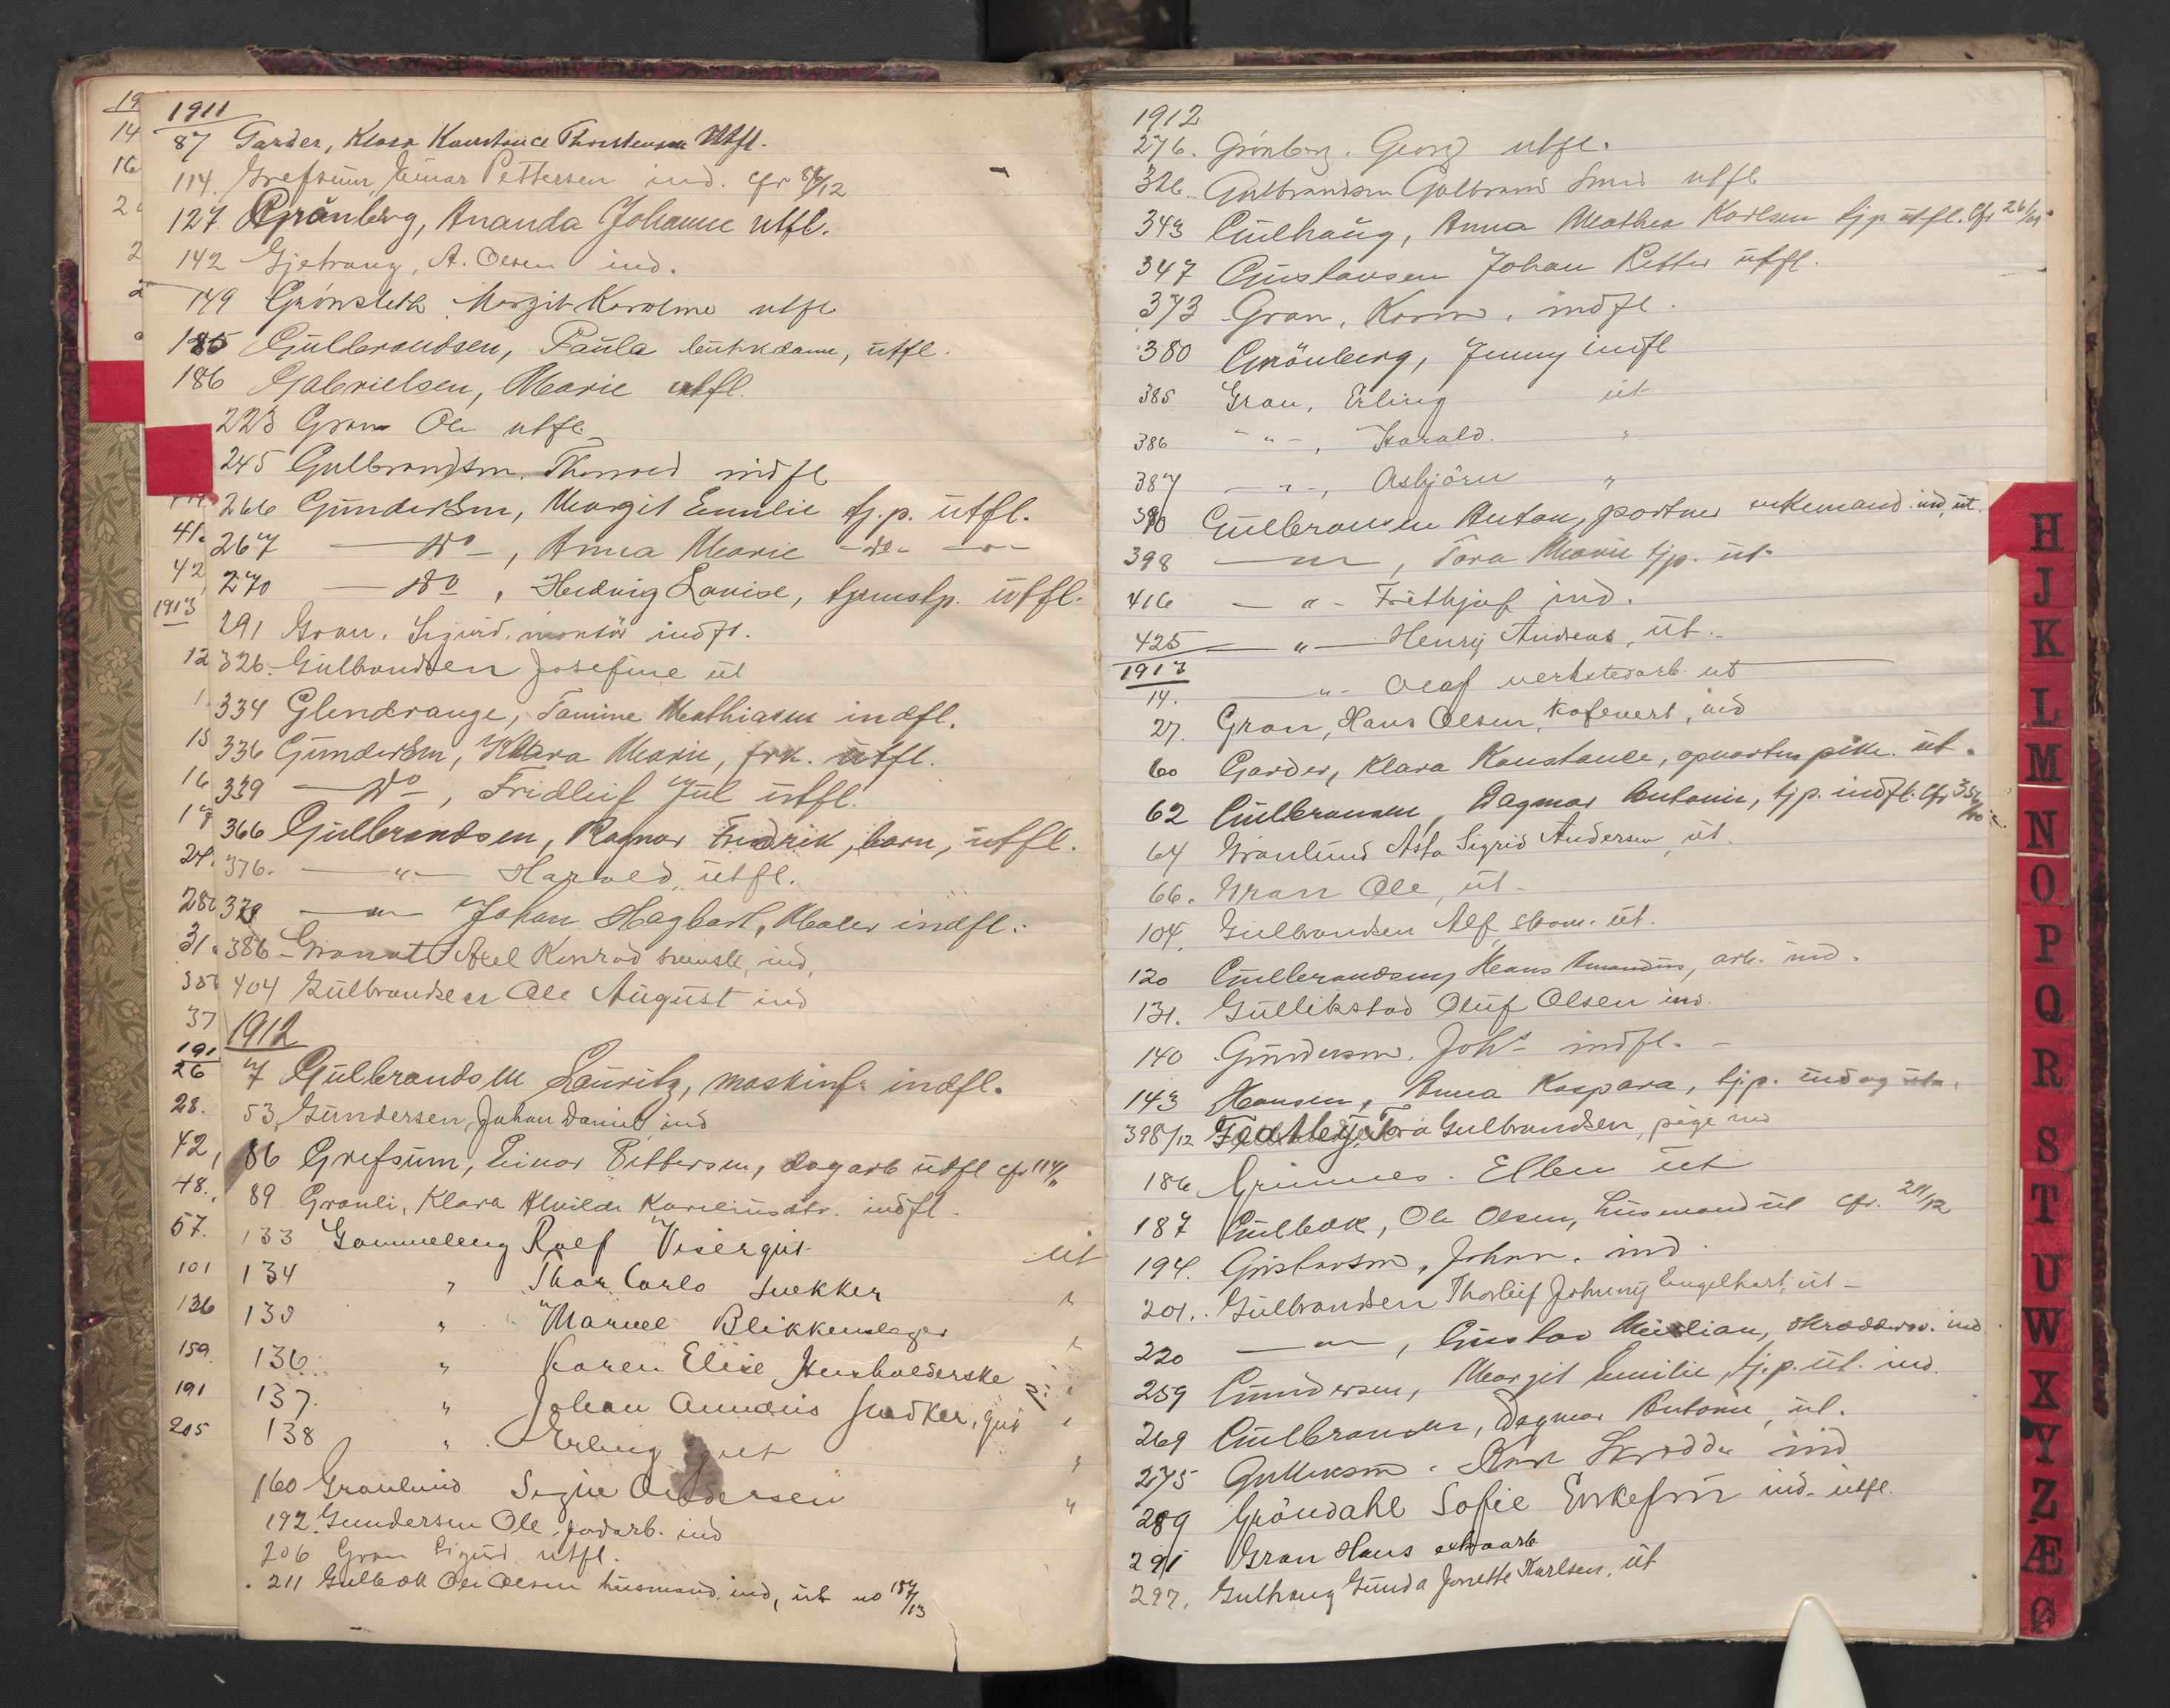 1911
87 Garder, Klara Konstance Thorstensen utfl.
114. Grefsum, Einar Pettersen ind. cfr 86/12
127 Grönberg, Ananda Johanne utfl.
142 Gjetrang, A. Olsen ind.
149 Grönsleth Margit Karoline utfl
185 Gulbrandsen, Paula butikdame, utfl.
186 Gabrielsen, Marie utfl.
223 Gran Ole utfl.
245 Gulbrandsen, Thorvald indfl
266 Gundersen, Margit Emilie tj.p. utfl.
267 — Do —, Anna Marie — Do — —"—
270 — Do , Hedvig Lovise, tjenestp. utfl.
291 Gran, Sigurd, montör indfl.
326. Gulbrandsen Josefine ut
334 Glendrange, Tamine Mathiasen indfl.
336 Gundersen, Klara Marie, frk. utfl.
339 — Do —, Fridleif Jul utfl.
366 Gulbrandsen, Ragnar Fredrik, barn, utfl.
376. —"— Harald, utfl.
379 —"— Johan Hagbart, Maler indfl.
386 Granat Axel Konrad svensk, ind,
404 Gulbrandsen Ole August ind
1912
7 Gulbrandsen Lauritz, maskinf. indfl.
53, Gundersen, Johan Daniel ind
86 Grefsum, Einar Pettersen, dagarb utfl cfr 114/11
89 Granli, Klara Alvilde Kareliusdtr. indfl.
133 Gammeleng Rolf Visergut ut
134 " Thor Carlo Snekker "
135 " Marcel Blikkenslager "
136 " Karen Elise Husholderske "
137. " Johan Amandus Snedker, gut "
138 " Erling gut "
160 Granlund Signe Andersen "
192. Gundersen Ole, jordarb. ind
206 Gran Sigurd utfl.
211 Gulbæk Ole Olsen husmand. ind, ut no 187/13
1912
276. Grönberg. Georg utfl.
326. Gulbrandsen Gulbrand Smed utfl
343 Gulhaug, Anna Mathea Karlsen tjp utfl. Cfr 26/01
347 Gustavsen Johan Petter utfl.
373 Gran, Karen, indfl.
380 Grönberg, Jenny indfl
385 Gran, Erling ut
386 - " -, Harald. "
387 - " -, Asbjörn "
390 Gulbransen Anton, portner enkemand. ind, ut.
398 —"—, Tora Marie tjp. ut.
416 — " - Frithjof ind.
425 — " — Henry Andreas, ut.
1913
14. — " - Olaf verkstedarb. ut
27. Gran, Hans Olsen, Kafevert, ind
60 Garder, Klara Konstance, opvartnpike. ut.
62 Gulbransen, Dagmar Antonie, tjp. indfl. Cfr 352/10
64 Granlund Asta Sigrid Andersen, ut.
66. Gran Ole, ut.
104. Gulbrandsen Alf, ut.
120 Gulbrandsen Hans Amandus, arb. ind.
131. Gullikstad Oluf Olsen ind.
140 Gundersen, Johs indfl.
143 Hansen, Anna Kaspara, tjp. ind og ut.
398/12 Faatley, Tora Gulbrandsen, pige ind
186 Grimnes. Ellen ut
187 Gulbæk, Ole Olsen, Husmand ut cfr. 211/12
194. Gustavsen, Johan. ind.
201. Gulbrandsen Thorleif Johnny Engelhart, ut
220 —"—, Gustav skrædder. ind
259 Gundersen, Margit Emilie, tj.p. ut. ind.
269 Gulbransen, Dagmar Antonie, ut.
275 Gulliksen. Karl Skrædder ind
289 Gröndahl Sofie Enkefru ind. utfl.
291 Gran Hans extraarb
297. Gulhaug Gunda Jonette Karlsen, ut
H
J
K
L
M
N
O
P
Q
R
S
T
U
W
X
Y
Z
Æ
Ø